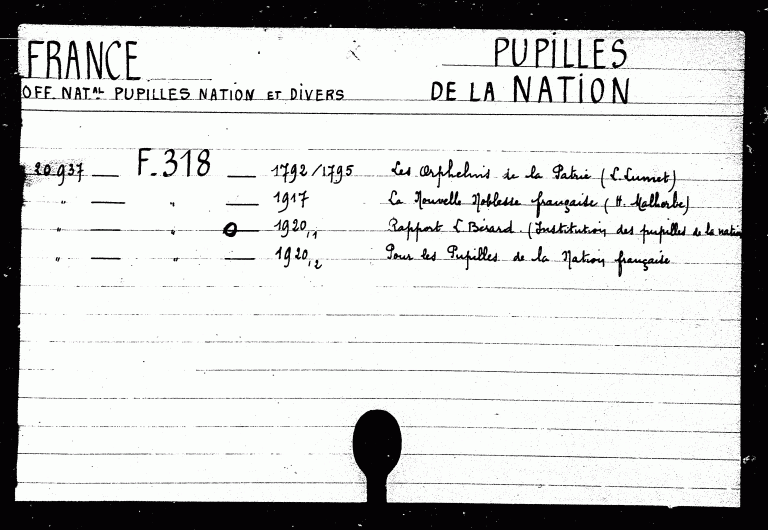 FRANCE PUPILLES
OFF. NAT.AL PUPILLES NATION ET DIVERS DE LA NATION
20937 — F.318 — 1792/1795 Les Orphelins de la Patrie (L. Lumet)
" — " — 1917 La Nouvelle Noblesse française (H. Malherbe)
" — " — 1920,1 Rapport L Bérard. (Institution des pupilles de la nation
" — " — 1920,2 Pour les Pupilles de la Nation française